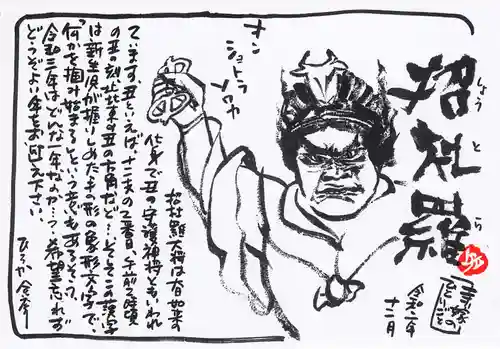 招杜羅
しょうとら
のひとりごと
令和二年
十二月
オン
ショトラ
ソワカ
招杜羅大将は如来の
化身で丑の守護神将ともいわれ
ています。丑といえば、十二支の2番目、午前2時頃
の丑の刻、北北東の丑の方角など…。この漢字
は新生児が握りしめた手の形の象形文字で、
「何かを掴み始める」という もあるそう。
令和三年はどんな一年なのか…?希望を忘れず
どうぞよい年をお迎え下さい。
ひろか 合掌